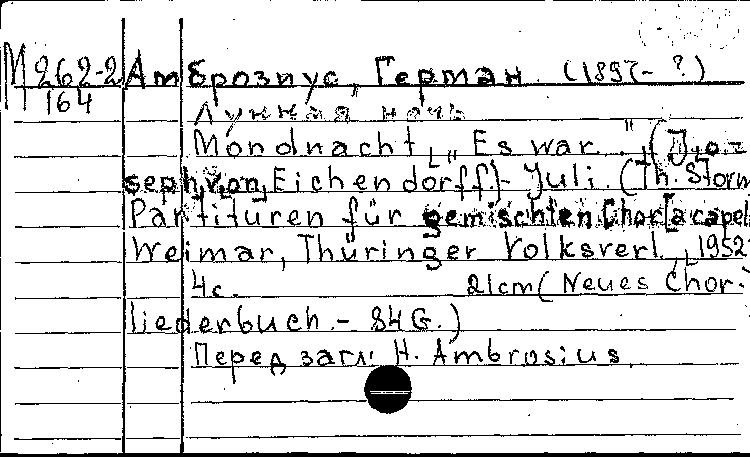 М 262-2 Амброзиус, Герман. (1897- ?)
164
Лунная ночь
Mondnacht „Es war..." (Jo=
seph von Eichendorff)- Juli. (Th. Storm
Partituren für gemischten Chor [a capel
Weimar, Thüringer Volksverl., 1952
4c. 21cm (Neues Chor-
liederbuch.- 84 G.)
Перед загл: H. Ambrosius.